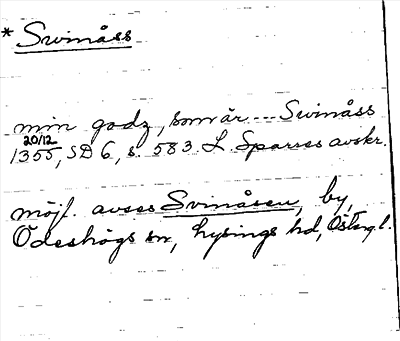 * Swinåss
min godz, som är --- Swinåss
20/12 1355, SD 6, s. 583. L Sparres avskr.
möjl. avses Svinåsen, by,
Ödeshögs sn, Lysings hd, Östergl.